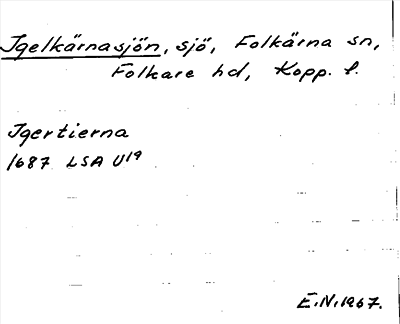 Igelkärnasjön, sjö, Folkärna sn,
Folkare hd, Kopp. l.
Igertierna
1687 LSA U19
E.N. 1967.